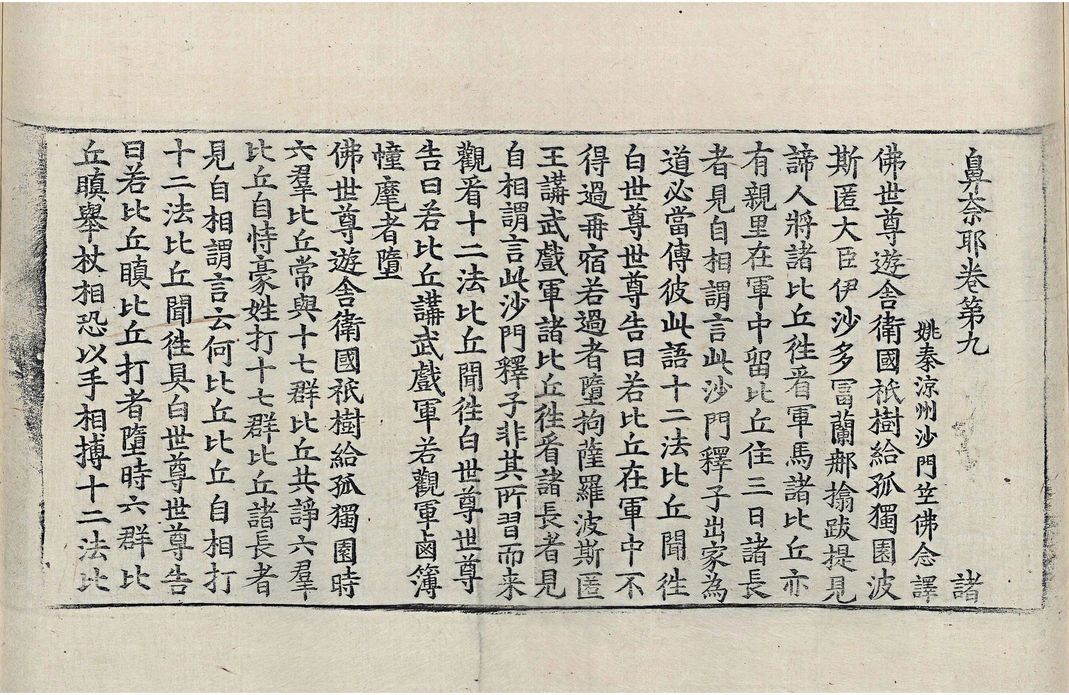 鼻奈耶卷第九 諸
姚秦涼州沙門竺佛念譯
佛世尊遊舍衛國祇樹給孤獨園波
斯匿大臣伊沙多冨蘭那搚跋提見
諦人將諸比丘徃㸔軍馬諸比丘亦
有親里在軍中留比丘住三日諸長
者見自相謂言此沙門釋子出家為
道必當傳彼此語十二法比丘聞徃
白世尊世尊告曰若比丘在軍中不
得過再宿若過者墮拘薩羅波斯匿
王講武戲軍諸比丘徃㸔諸長者見
自相謂言此沙門釋子非其所習而来
觀㸔十二法比丘聞徃白世尊世尊
告曰若比丘講武戲軍若觀軍鹵簿
幢麾者墮
佛世尊遊舍衛國祇樹給孤獨園時
六羣比丘常與十七群比丘共諍六羣
比丘自恃豪姓打十七群比丘諸長者
見自相謂言云何比丘比丘自相打
十二法比丘聞徃具白世尊世尊告
曰若比丘瞋比丘打者墮時六群比
丘瞋舉杖相恐以手相搏十二法比